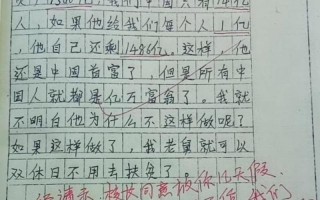 1500亿,我们中国只有14亿
人,如果他给我们每个人1亿
,他自己还剩1486亿。这样,他
还是中国首富了,但是所有中
国人就都是亿万富翁了。我就
不明白他为什么不这样做呢?
如果这样做了,我老舅就可以
双休日不用去扶贫了。
请示校长同意放你几天假
我们